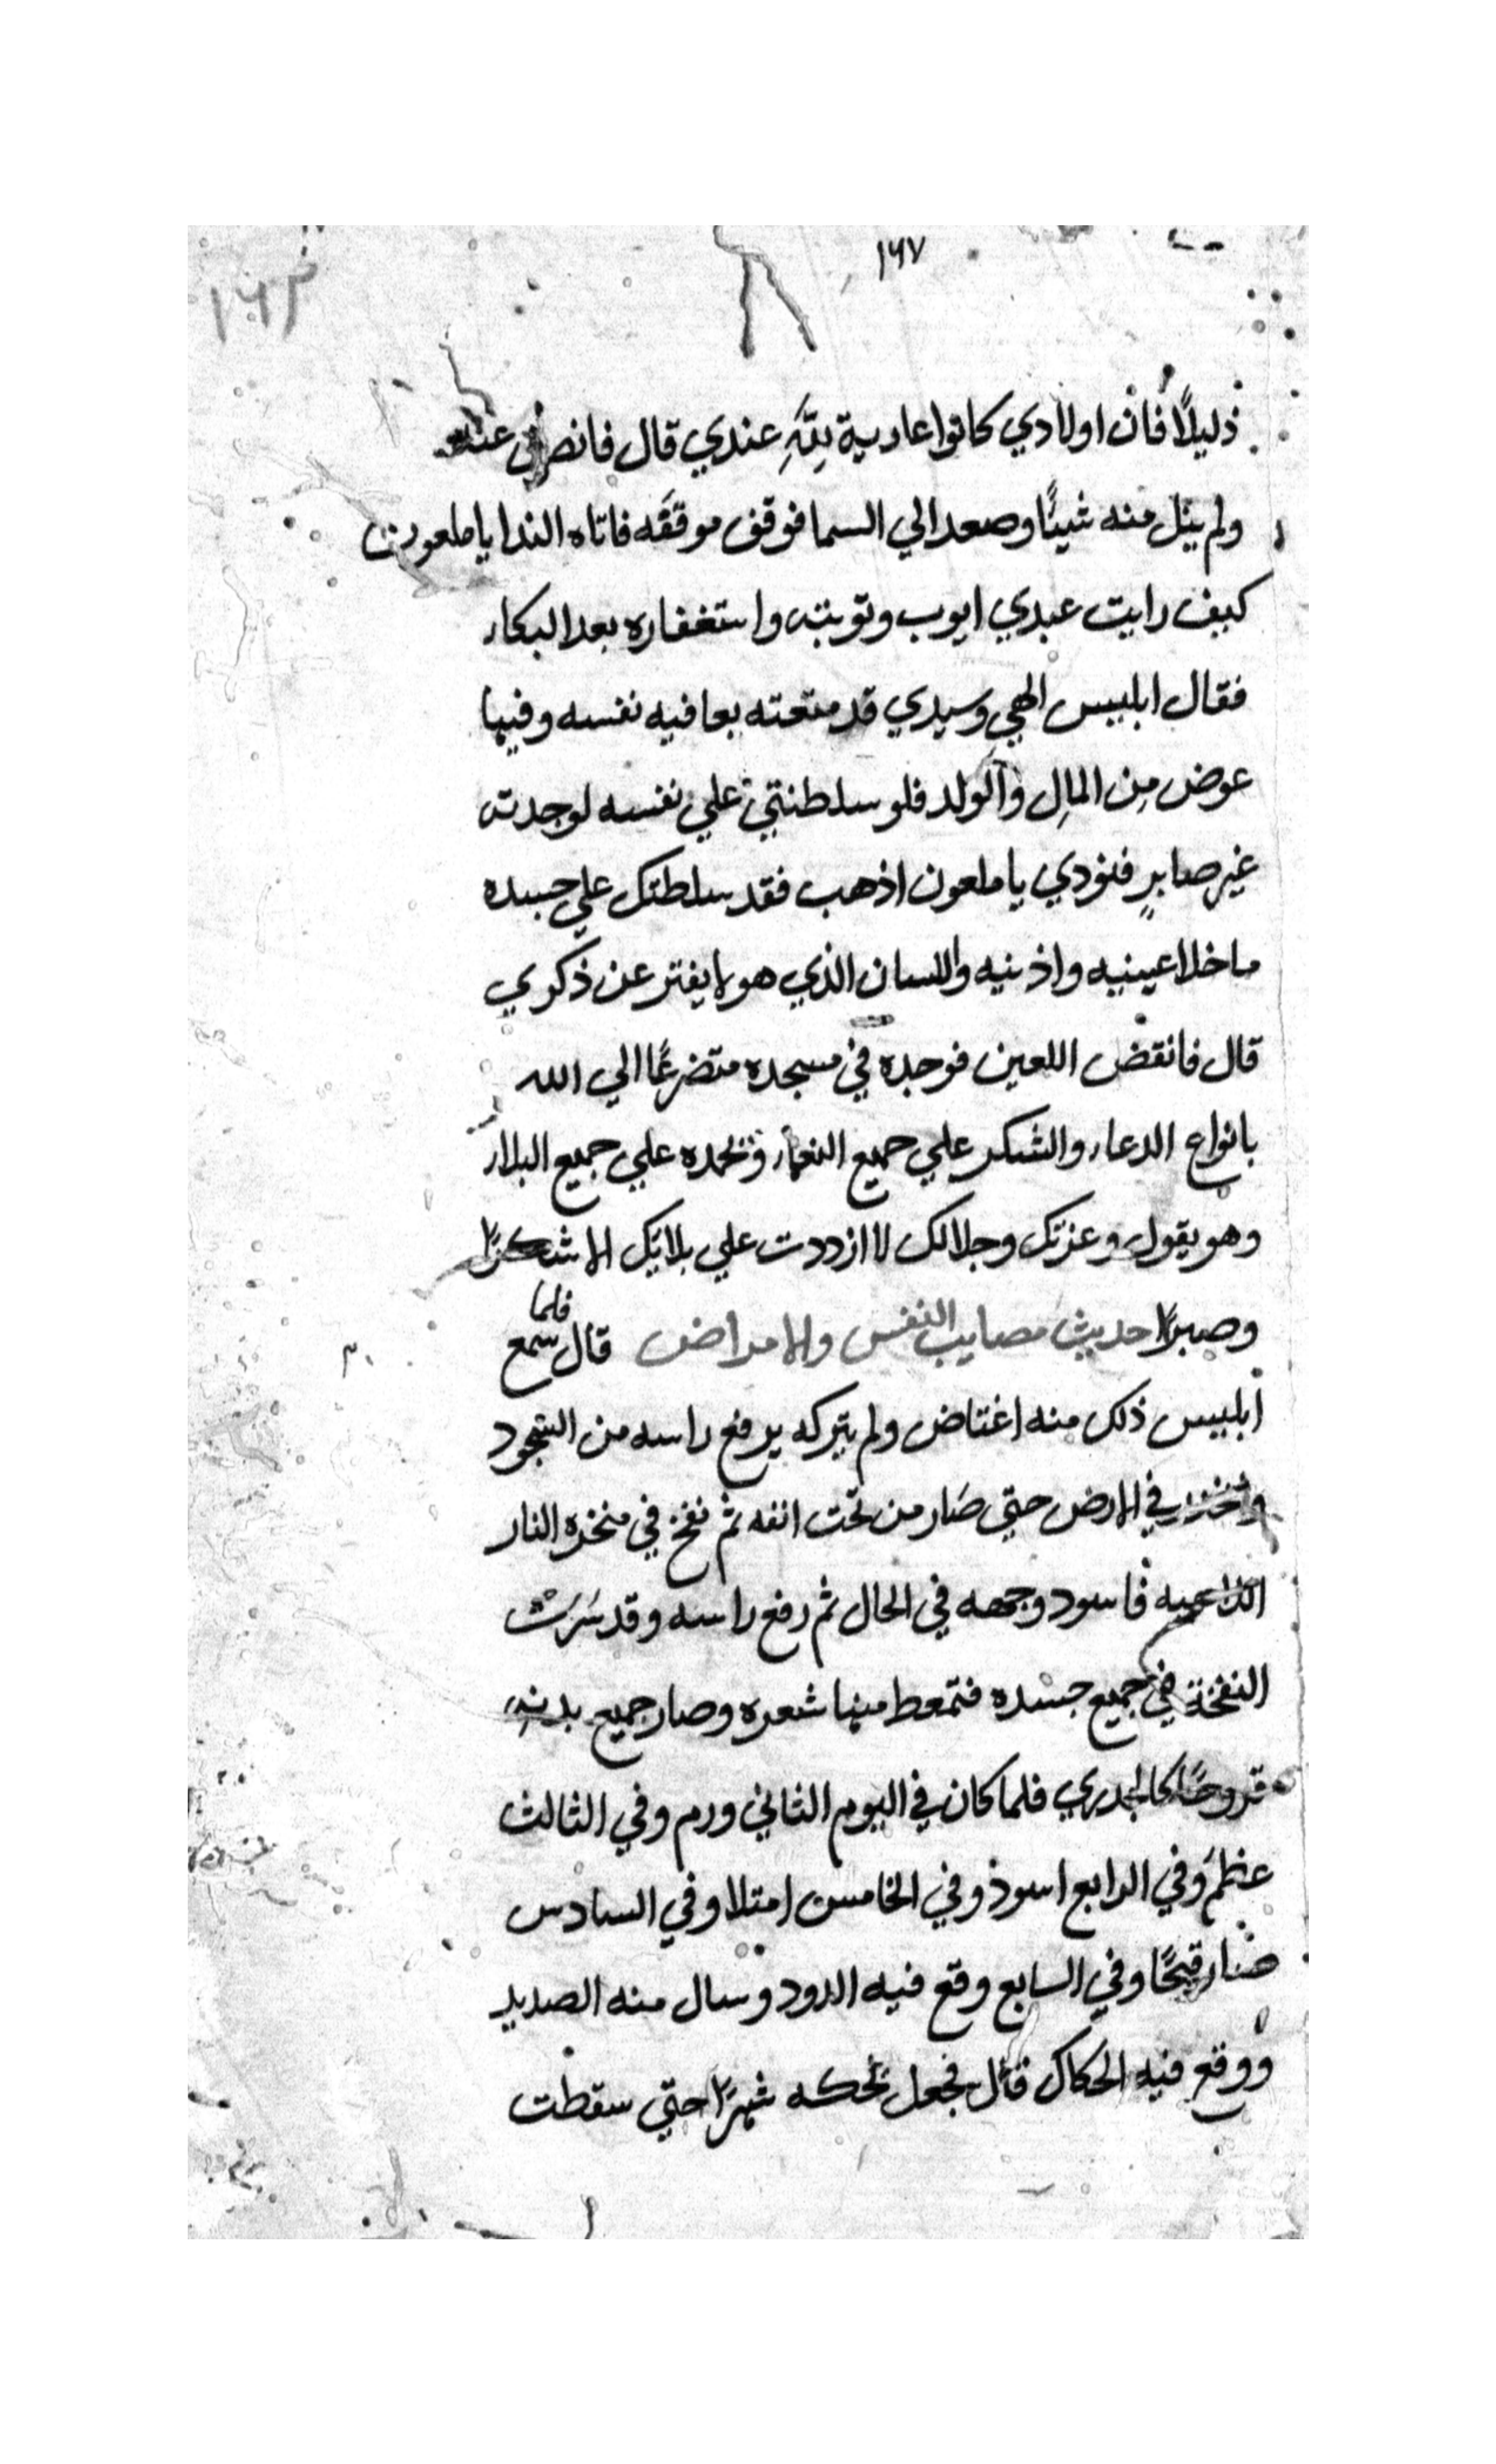 ١٦٧
١٦٢
ذليلًا فان اولادي كانوا عارية لِلّهِ عندي قال فانصرف عنه
ولم ينل منه شيئًا وصعد الي السما فوقف موقفَه فاتاه الندا يا ملعون
كيف رايت عبدي ايوب وتوبته واستغفاره بعد البكاء
فقال ابليس الهي وسيدي قد متعته بعافيه نفسه وفيها
عوض مِن المالِ والولد فلو سلطتني علي نفسه لوجدته
غير صابرٍ فنودي يا ملعون اذهب فقد سلطتك علي جسده
ما خلا عينيه واذنيه واللسان الذي هو لا يفتر عن ذكري
قال فانقض اللعين فوجده في مسجده متضرعًا الي الله
بانواع الدعاء والشكر علي جميع النعماء ونحمده علي جميع البلاء
وهو يقول وعزتك وجلالك لا ازددت علي بلائك الا شكرًا
وصبرًا حديث مصايب النفس والامراض قال فلما سمع
ابليس ذلك منه اغتاض ولم يتركه يرفع راسه من السجود
في الارض حتي صَار من تحت انفه ثم نفخ في منخره النار
فاسود وجهه في الحال ثم رفع راسه وقد سَرَت
النفخة في جميع جسده فتمعط منها شعره وصار جميع بدنه
قروحًا كالجدري فلما كان في اليوم الثاني ورم وفي الثالث
عظم وفي الرابع اسود وفي الخامس امتلا وفي السادس
صار قيحًا وفي السابع وقع فيه الدود وسال منه الصديد
ووقع فيه الحكاك قال فجعل نحكه شهرًا حتي سقطت